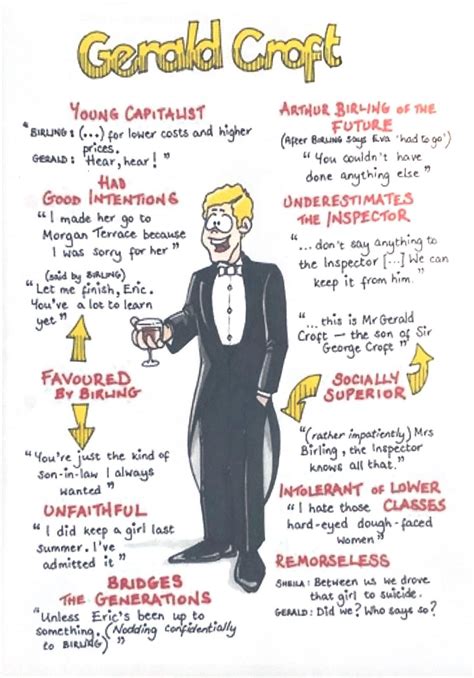 Gerald Croft
YOUNG CAPITALIST
"BIRLING: (...) for lower costs and higher
prices.
GERALD: 'Hear, hear!"
HAD
GOOD INTENTIONS
"I made her go to
Morgan Terrace because
I was sorry for her"
(said by BIRLING)
"Let me finish, Eric.
You've a lot to learn
yet"
FAVOURED
BY BIRLING
"You're just the kind of
son-in-law I always
wanted"
UNFAITHFUL
"I did keep a girl last
summer. I've
admitted it"
BRIDGES
THE GENERATIONS
"Unless Eric's been up to
something. (Nodding confidentially
to BIRLING)"
ARTHUR BIRLING OF THE
FUTURE
(After BIRLING says Eva 'had to go')
"You couldn't have
done anything else"
UNDERESTIMATES
THE INSPECTOR
"... don't say anything to
the Inspector [...] We can
keep it from him."
"...this is Mr Gerald
Croft — the son of Sir
George Croft"
SOCIALLY
SUPERIOR
"(rather impatiently) Mrs
Birling, the Inspector
knows all that."
INTOLERANT OF LOWER
CLASSES
"I hate those
hard-eyed dough-faced
women"
REMORSELESS
SHEILA: Between us we drove
that girl to suicide.
GERALD: Did we? Who says so?